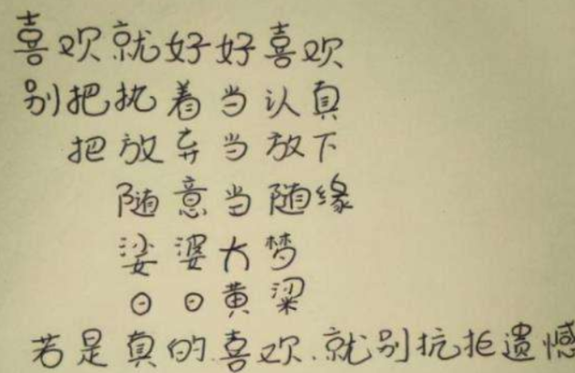 喜欢就好好喜欢
别把执着当认真
把放弃当放下
随意当随缘
娑婆大梦
日日黄粱
若是真的喜欢.就别抗拒遗憾